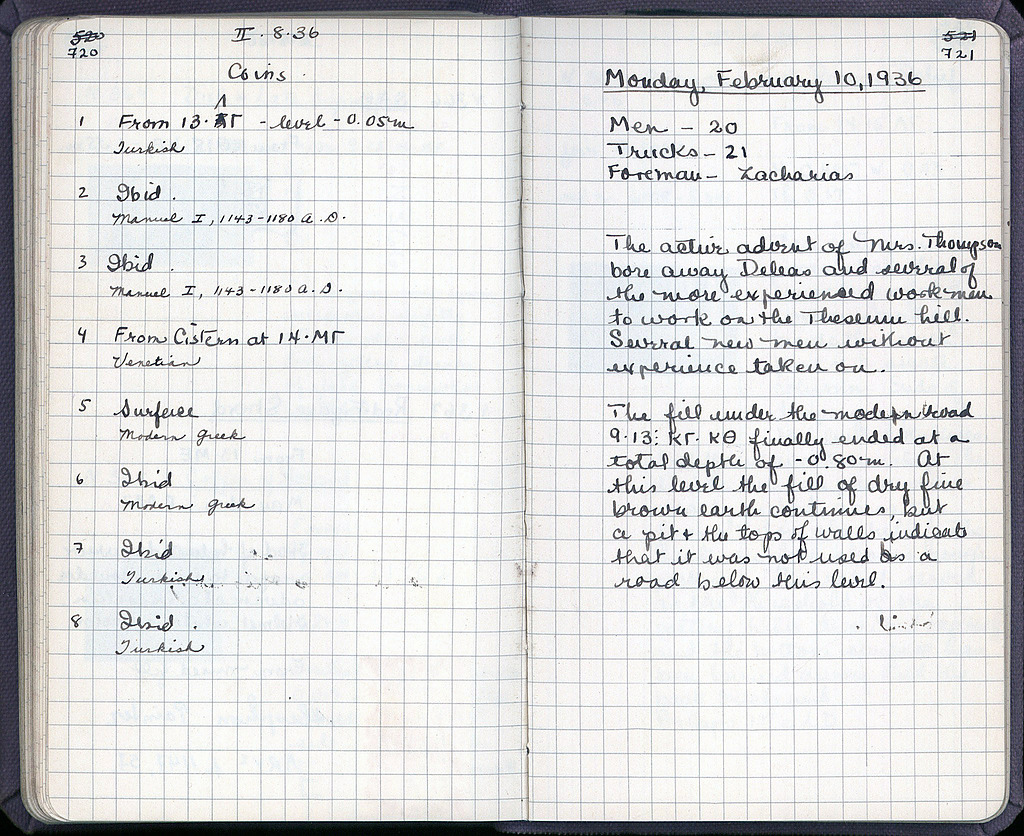 520
720
II. 8.36
Coins
1 From 13.ΛΓ - level - 0.05m
Turkish
2 Ibid.
Manuel I, 1143-1180 A.D.
3 Ibid.
Manuel I, 1143-1180 A.D.
4 From Cistern at 14.ΜΓ
Venetian
5 Surface
Modern Greek
6 Ibid
Modern Greek
7 Ibid
Turkish
8 Ibid.
Turkish
521
721
Monday, February 10, 1936
Men - 20
Trucks - 21
Foreman - Zacharias
The active advent of Mrs. Thompson
bore away Deleas and several of
the more experienced workmen
to work on the Theseum hill.
Several new men without
experience taken on.
The fill under the modern road
9-13: ΚΓ-ΚΘ finally ended at a
total depth of -0.80m. At
this level the fill of dry fine
brown earth continues, but
a pit & the tops of walls indicate
that it was not used as a
road below this level.